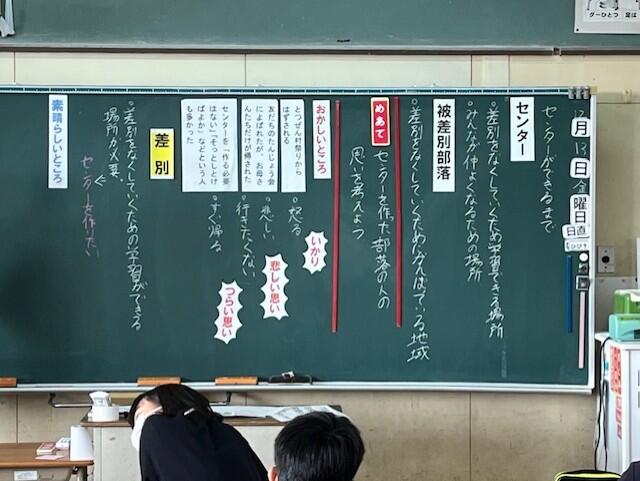 ダーひとつ
月
13
日
金
曜日
日直
センターができるまで
センター
・差別をなくしていくための学習できる場所
・みんなが仲よくなるための場所
被差別部落
・差別をなくしていくためにがんばっている地域
めあて
センターを作った部落の人の
思いを考えよう
おかしいところ
とつぜん村祭りから
はずされる
友だちのたんじょう会
によばれたが、お母さ
んたちだけが帰された
センターを「作る必要
はない」「そっとしとけ
ばよか」などという人
も多かった
・怒る
・悲しい
・行きたくない
・すぐ帰る
いかり
悲しい思い
つらい思い
差別
・差別をなくしていくための学習ができる
場所が必要。
センターを作りたい
素晴らしいところ